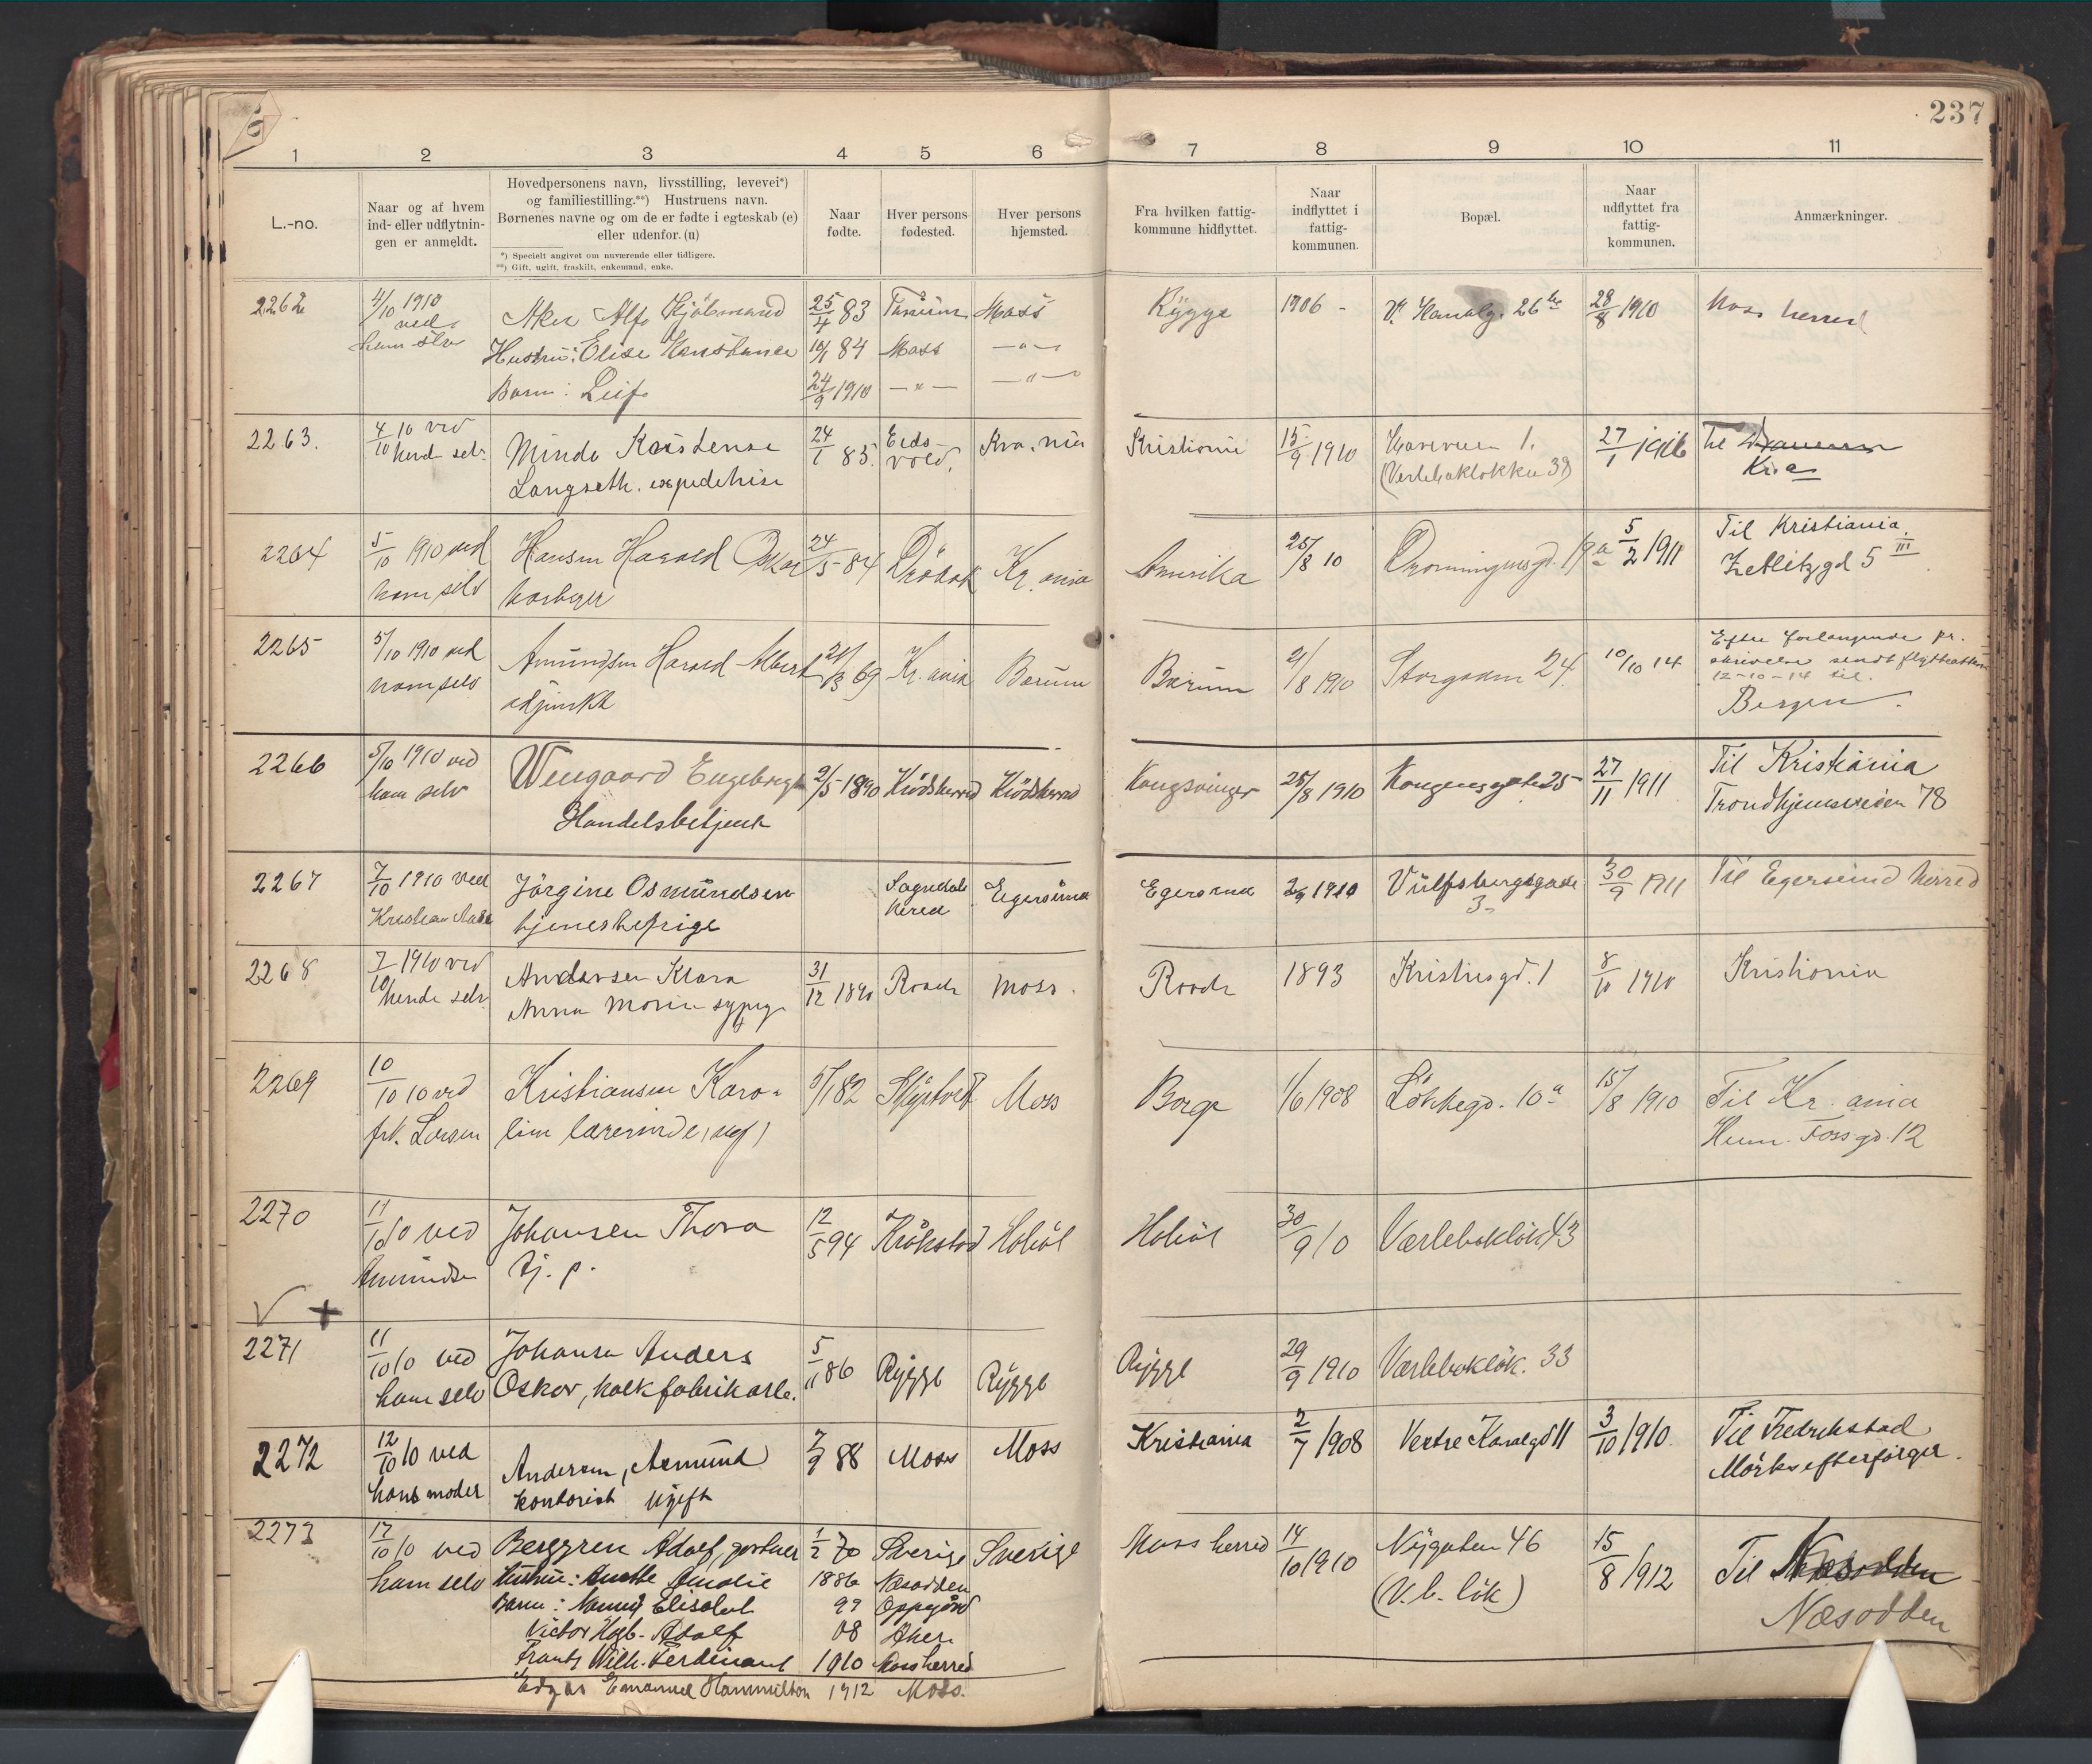 237
1 2 3 4 5 6 7 8 9 10 11
L.-no.
Naar og af hvem
ind- eller udflytnin-
gen er anmeldt.
Hovedpersonens navn, livsstilling, levevei*)
og familiestilling.**) Hustruens navn.
Børnenes navne og om de er fødte i egteskab (e)
eller udenfor. (u)
*) Specielt angivet om nuværende eller tidligere.
**) Gift, ugift, fraskilt, enkemand, enke.
Naar
fødte.
Hver persons
fødested.
Hver persons
hjemsted.
Fra hvilken fattig-
kommune hidflyttet.
Naar
indflyttet i
fattig-
kommunen.
Bopæl.
Naar
udflyttet fra
fattig-
kommunen.
Anmærkninger.
2262 4/10 1910 Aker Alf Kjøbmand 25/4 83 Moss Rygge 1906 - V. Kanalg. 26 28/8 1910 Moss herred
ved
ham selv Hustru: Elise Konstance 10/1 84 Moss —"—
Barn: Leif 24/9 1910 —"— —"—
2263. 4/10 10 ved 24/1 85. Eids- Kra. nia Kristiania 15/9 1910 1. 27/1 1916 til
hende selv vold. (Verlebakløkka 39) Kr.a
Langseth. expeditrise
2264 5/10 1910 ved Hansen Harald Oskar 24/5 84 Drøbak Kr. ania Amerika 25/8 10 Dronningensgd. 19a 5/2 1911 Til Kristiania.
ham selv Zetlitzgd 5 III
2265 5/10 1910 ved Amundsen Harald Albert 69 Kr. ania Bærum Bærum /8 1910 Storgaden 24. 10/10 14 Efter forlangende pr.
ham selv adjunkt skrivelse sendt flytteattest
12-10-14 til
Bergen.
2266 5/10 1910 ved Wengaard Engebregt 2/5 1890 Krødsherred Krødsherred Kongsvinger 25/8 1910 Kongensgate 25 27/11 1911 Til Kristiania
ham selv Handelsbetjent Trondhjemsveien 78
2267 7/10 1910 ved Jørgine Osmundsen Egersund Egersund 1910 Vulfsbergsgade 30/9 1911 Til Egersund herred
tjenestepige herred 3
2268 7/10 1910 ved Andersen Klara 31/12 1890 Raade Moss. Raade 1893 Kristiesgd. 1 8/10 1910 Kristiania
hende selv Anna Marie sypige
2269 10/10 10 ved Kristiansen Karo- 5/1 82 Skiptvet Moss Borge 1/6 1908 10a 15/8 1910 Til Kr. ania
frk. Larsen line lærerinde, ugf. Hum. Fossgd. 12
2270 11/10 10 ved Johansen Thora 12/5 94 Kråkstad Hobøl Hobøl 30/9 10 Værlebakløk 43
Amundsen tj. p.
2271 11/10 10 ved Johansen Anders 5/11 86 Rygge Rygge Rygge 29/9 1910 Værlebakløk. 33
ham selv Oskar, kalkfabrikarb.
2272 12/10 10 ved Andersen, Asmund 7/9 88 Moss Moss Kristiania 2/7 1908 Vestre Kanalgd 11 3/10 1910. Til Fredrikstad
hans moder kontorist ugift
2273 17/10 10 ved Berggren Adolf, gartner 1/2 70 Sverige Sverige Moss herred 14/10 1910 Nygaten 46 15/8 1912 Til Næsodden
ham selv Hustru: Anette Amalie 1886 Næsodden (V. b. løk) Næsodden
Barn: Elisabet 99 Oppegård
Victor Hagb. Adolf 08 Aker
Frantz Wilh. Ferdinant 1910 Moss herred
Edgar Emanuel Hammilton 1912 Moss.